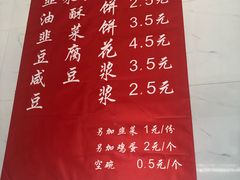 油酥饼 2.5元
韭菜饼 3.5元
豆腐花 4.5元
咸豆浆 3.5元
豆浆 2.5元
另加韭菜 1元/份
另加鸡蛋 2元/个
空碗 0.5元/个